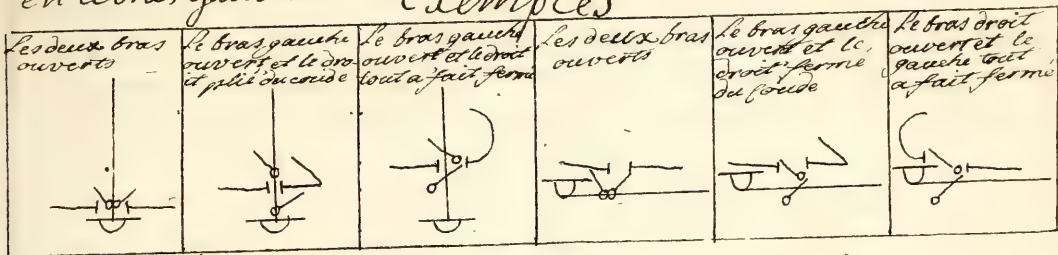 Exemples
Les deux bras
ouverts
Le bras gauche
ouvert et le dro-
it plié du coude
Le bras gauche
ouvert et le droit
tout a fait fermé
Les deux bras
ouverts
Le bras gauche
ouvert et le
droit fermé
du Coude
Le bras droit
ouvert et le
gauche tout
a fait fermé